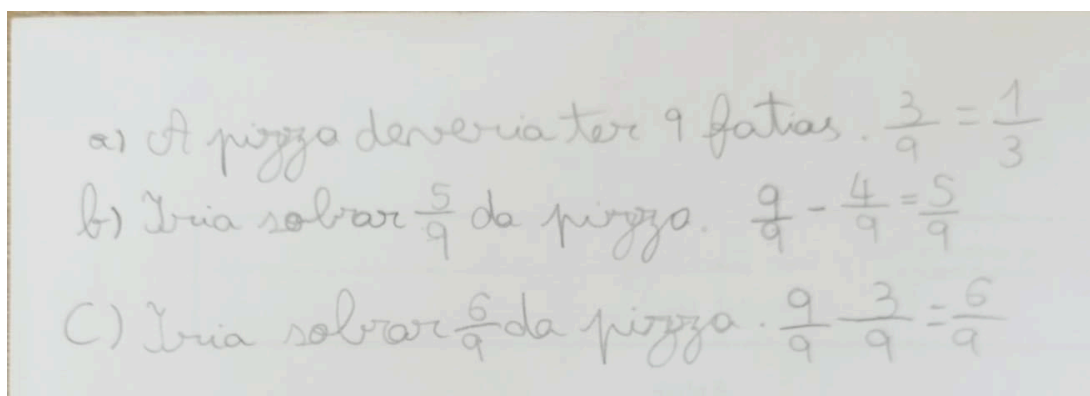 a) A pizza deveria ter 9 fatias. 3/9 = 1/3
b) Iria sobrar 5/9 da pizza. 9/9 - 4/9 = 5/9
C) Iria sobrar 6/9 da pizza. 9/9 - 3/9 = 6/9